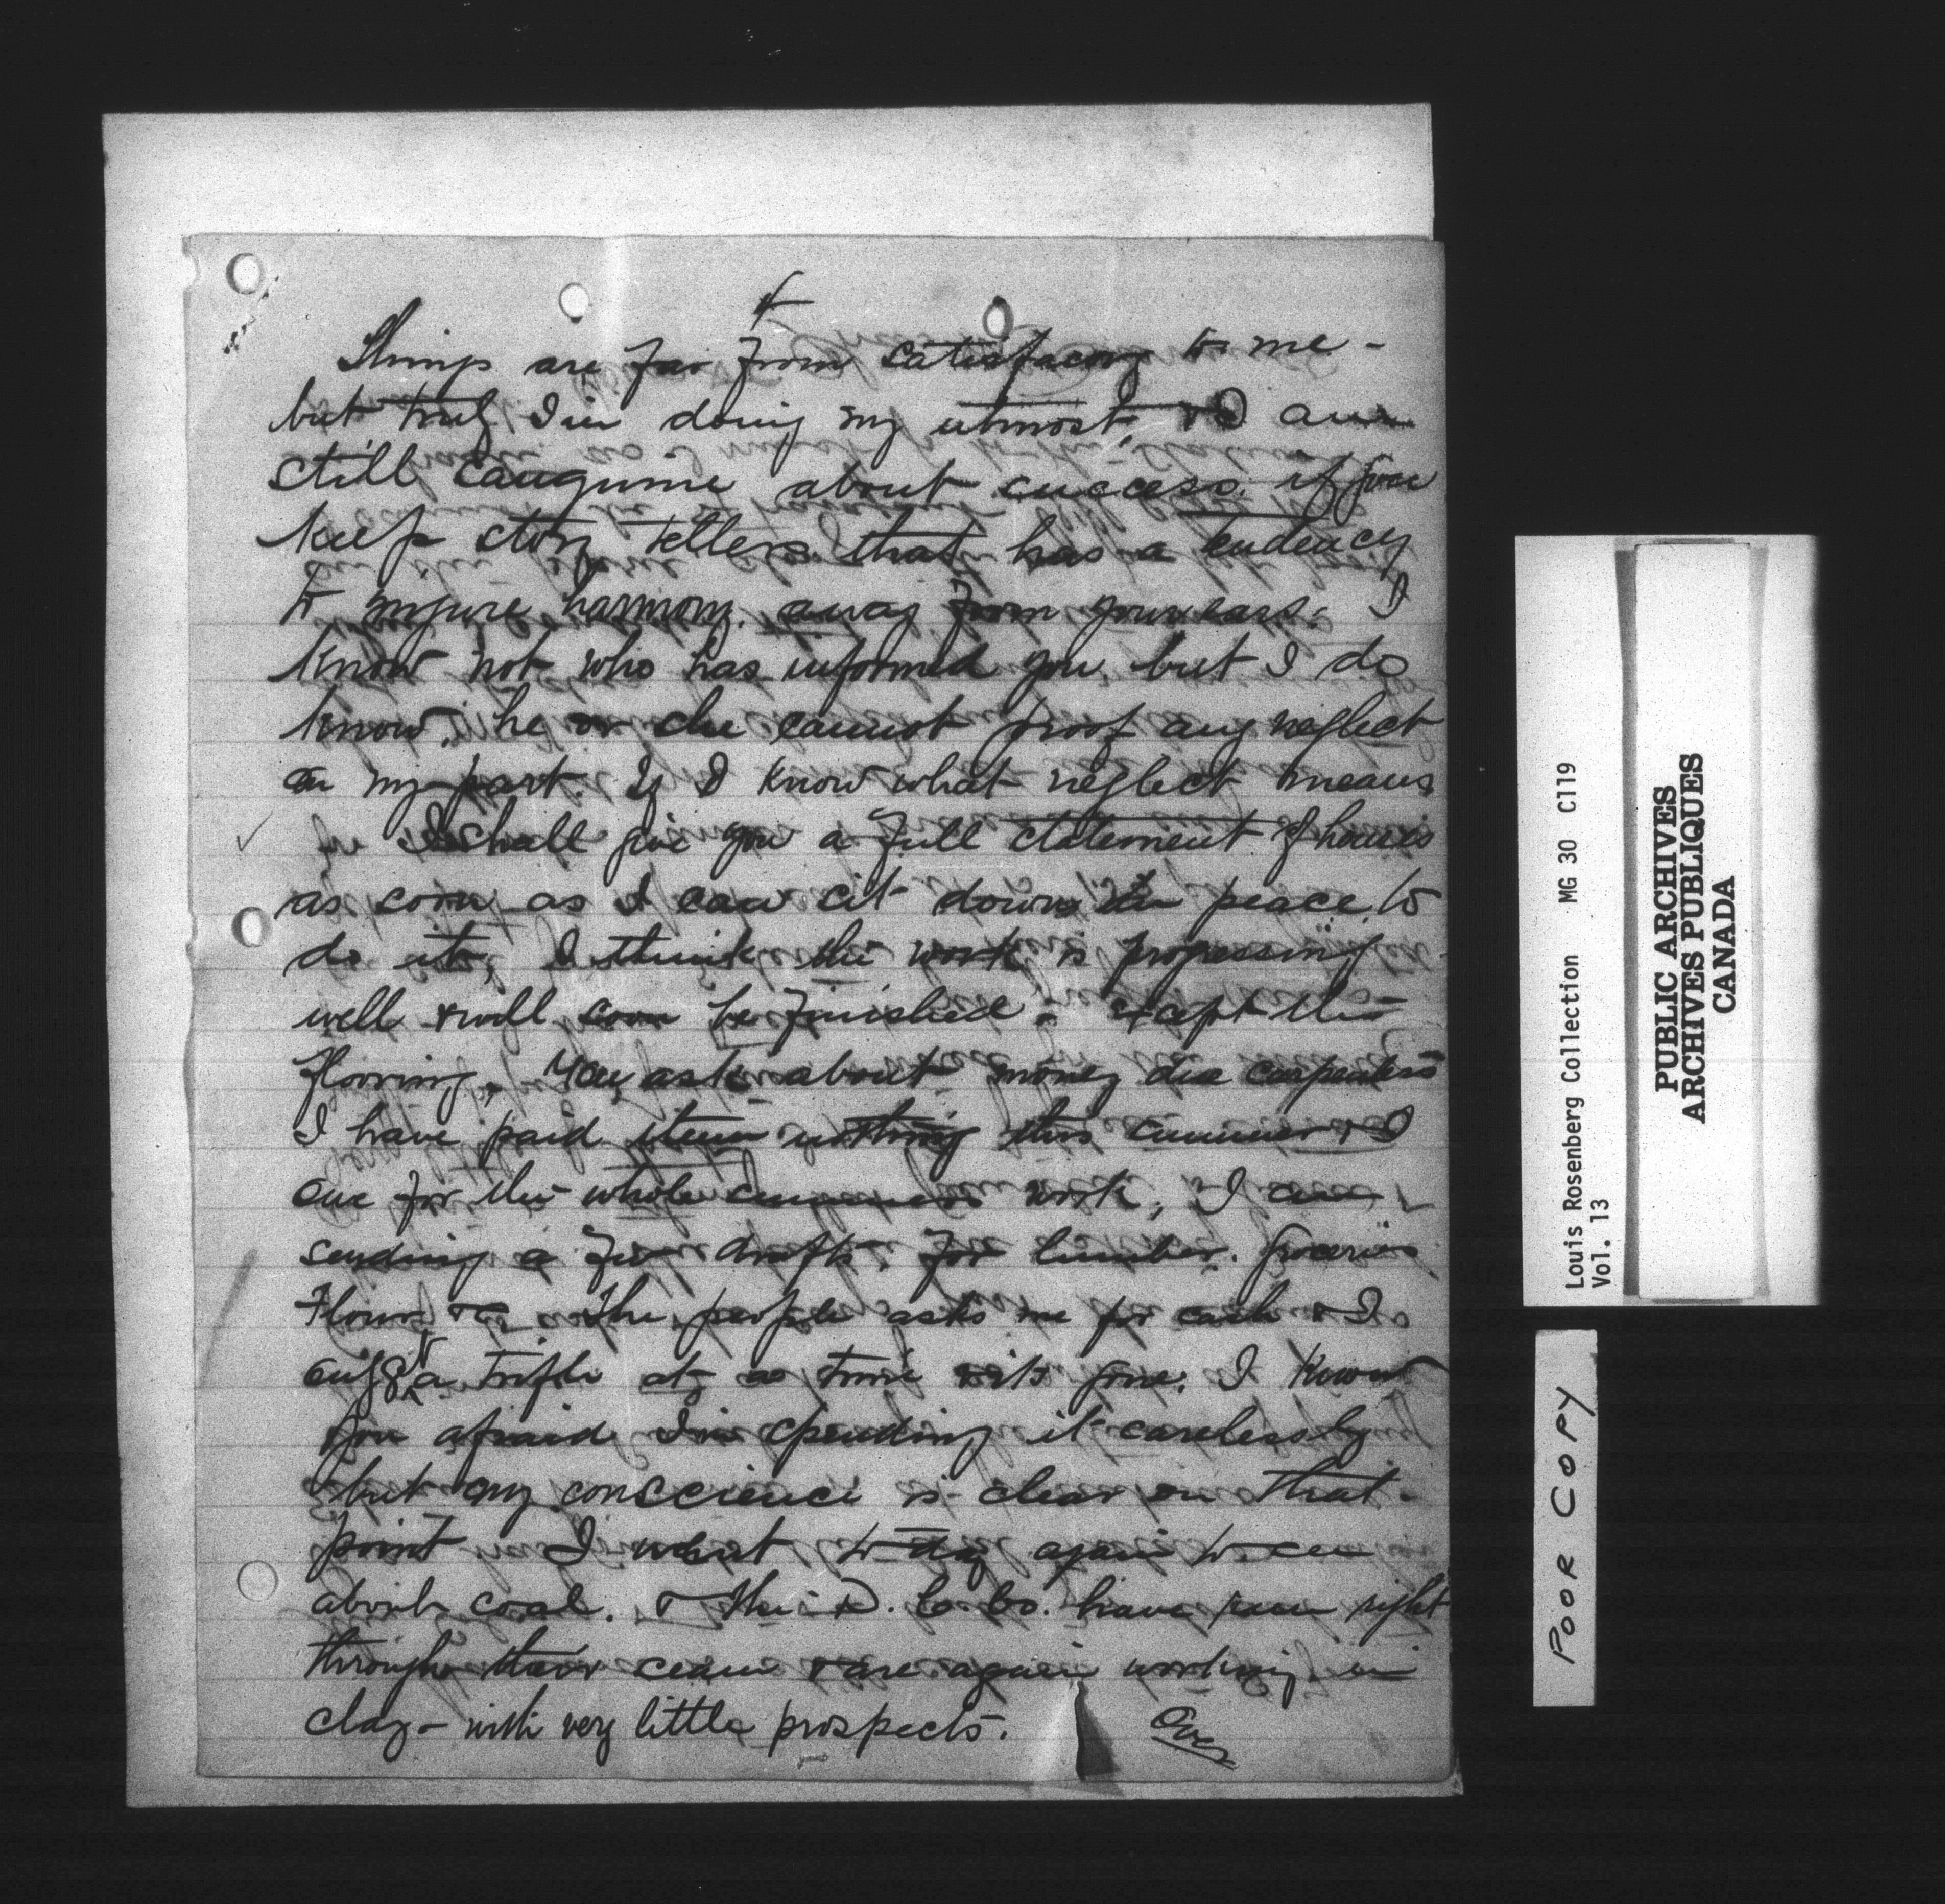 4
Things are far from satisfacory to me -
but truly I'm doing my utmost, & I am
still sanguine about success. if you
keep story tellers that has a tendency
to injure harmony. away from your ears. I
know not who has informed you. but I do
know, he or she cannot proof any neglect
on my part. If I know what neglect means
I shall give you a full statement of houses
as soon as I can sit down in peace to
do it, I think the work is progressing
well & will soon be finished - except the
flooring, You ask about money due carpenters
I have paid them nothing this summer & I
owe for the whole summers work, I am
sending a few drafts. for lumber. Groceries
Flour &c The people asks me for cash & I
a trifle at a time & its gone. I know
you afraid I'm spending it carelessly
but my conscience is clear on that
point I went to day again to see
about coal. & the D. C. Co. have run right
through their seam & are again working in
clay - with very little prospects.
Over
Louis Rosenberg Collection MG 30 C119
Vol. 13
PUBLIC ARCHIVES
ARCHIVES PUBLIQUES
CANADA
POOR COPY